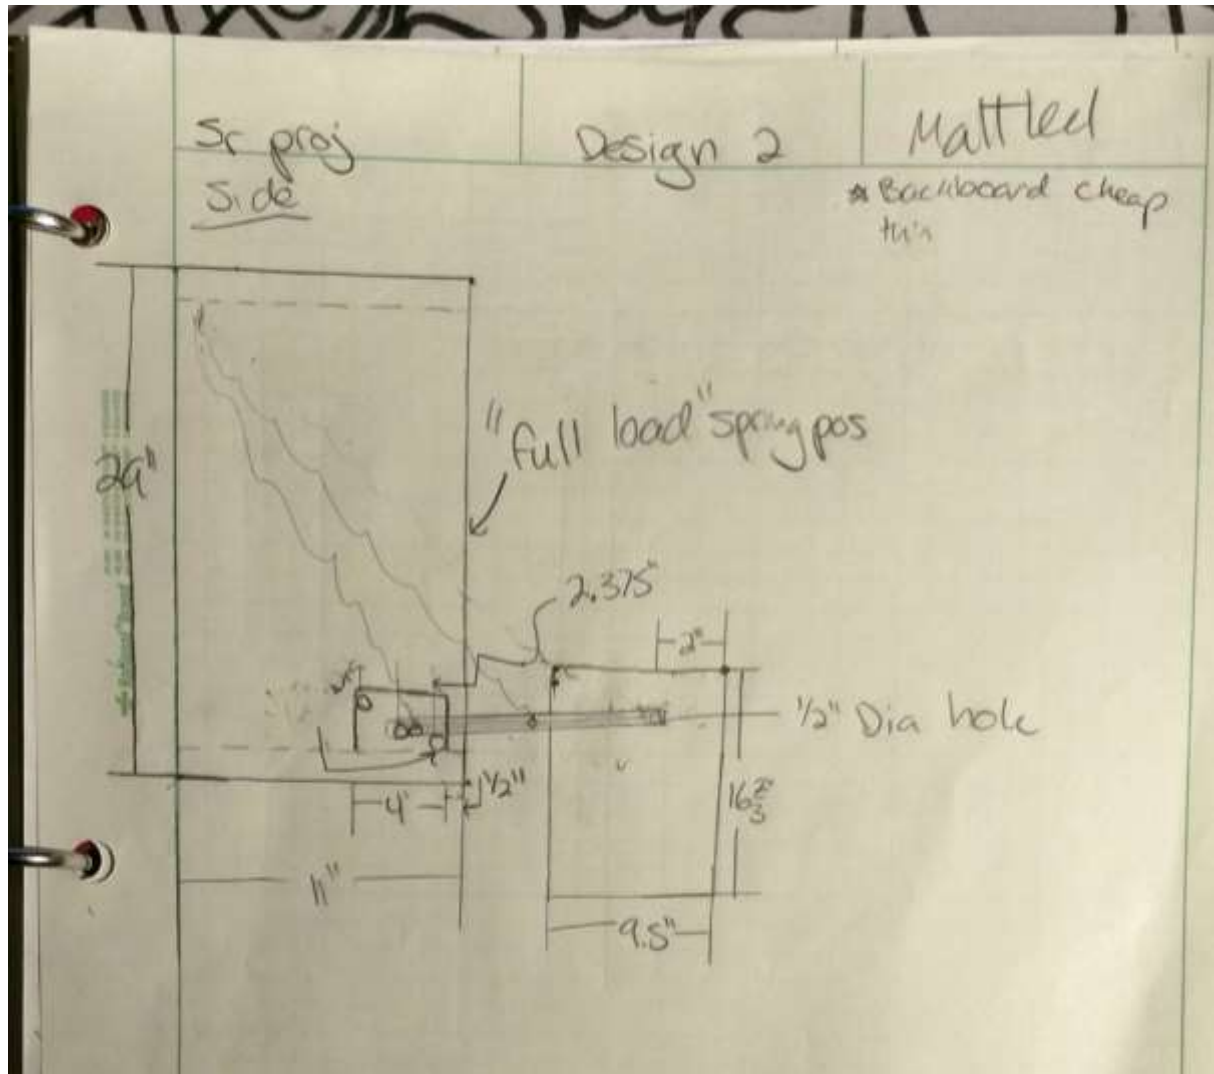 Sr proj
Design 2
Side
* Backboard cheap
thin
"full load" spring pos
2.375"
2"
1/2" Dia hole
4"
1/2"
16 2/3
11"
9.5"